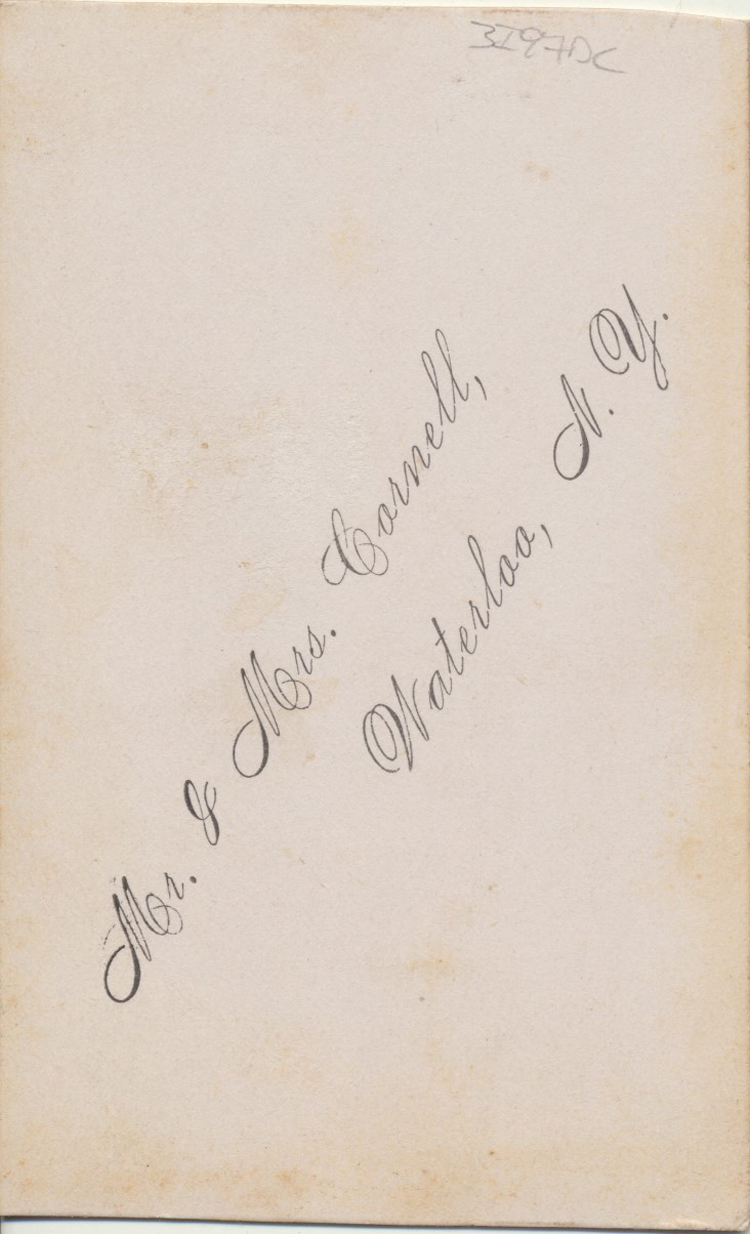 3I97DC
Mr. & Mrs. Cornell,
Waterloo, N. Y.